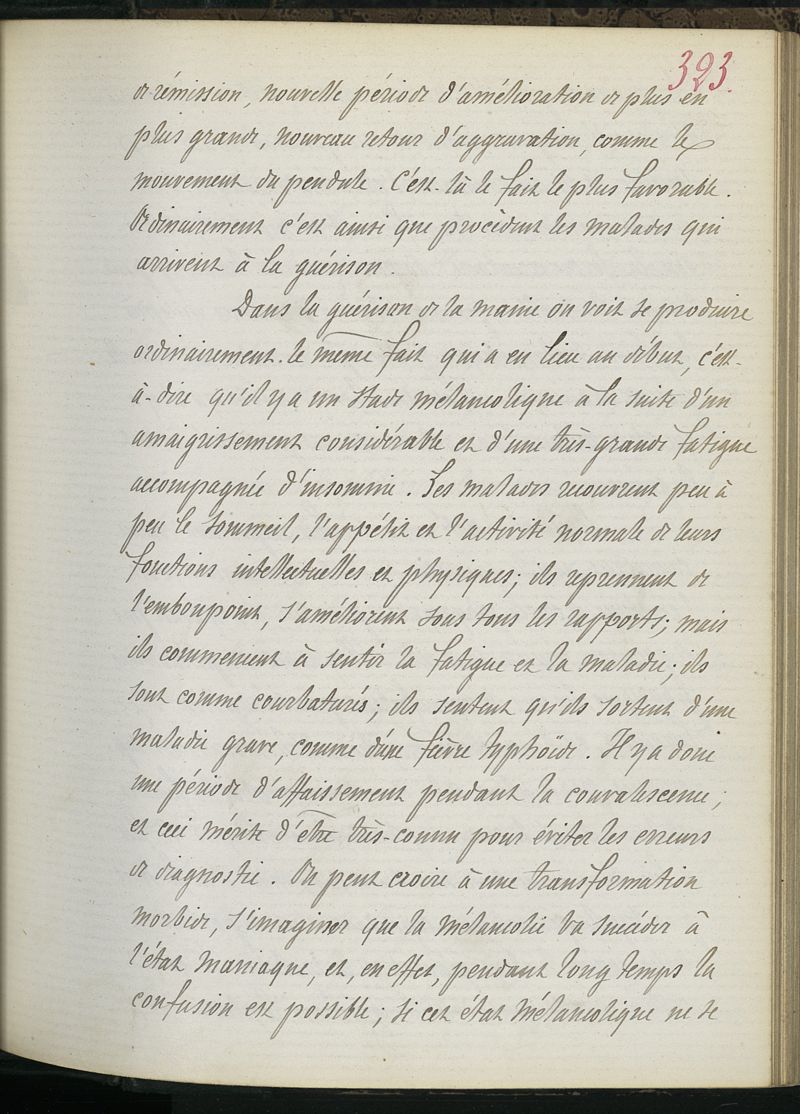 323.
de rémission, nouvelle période d'amélioration de plus en
plus grande, nouveau retour d'aggravation, comme le
mouvement du pendule. C'est-là le fait le plus favorable.
Ordinairement c'est ainsi que procèdent les malades qui
arrivent à la guérison.
Dans la guérison de la manie on voit se produire
ordinairement le même fait qui a eu lieu au début, c'est-
à-dire qu'il y a un stade mélancolique à la suite d'un
amaigrissement considérable et d'une très-grande fatigue
accompagnée d'insomnie. Les malades recouvrent peu à
peu le sommeil, l'appétit et l'activité normale de leurs
fonctions intellectuelles et physiques; ils reprennent de
l'embonpoint, s'améliorent sous tous les rapports; mais
ils commencent à sentir la fatigue et la maladie; ils
sont comme courbaturés; ils sentent qu'ils sortent d'une
maladie grave, comme d'une fièvre typhoïde. Il y a donc
une période d'affaissement pendant la convalescence;
et ceci mérite d'être très-connu pour éviter les erreurs
de diagnostic. On peut croire à une transformation
morbide, s'imaginer que la mélancolie va succéder à
l'état maniaque, et, en effet, pendant long temps la
confusion est possible; si cet état mélancolique ne se